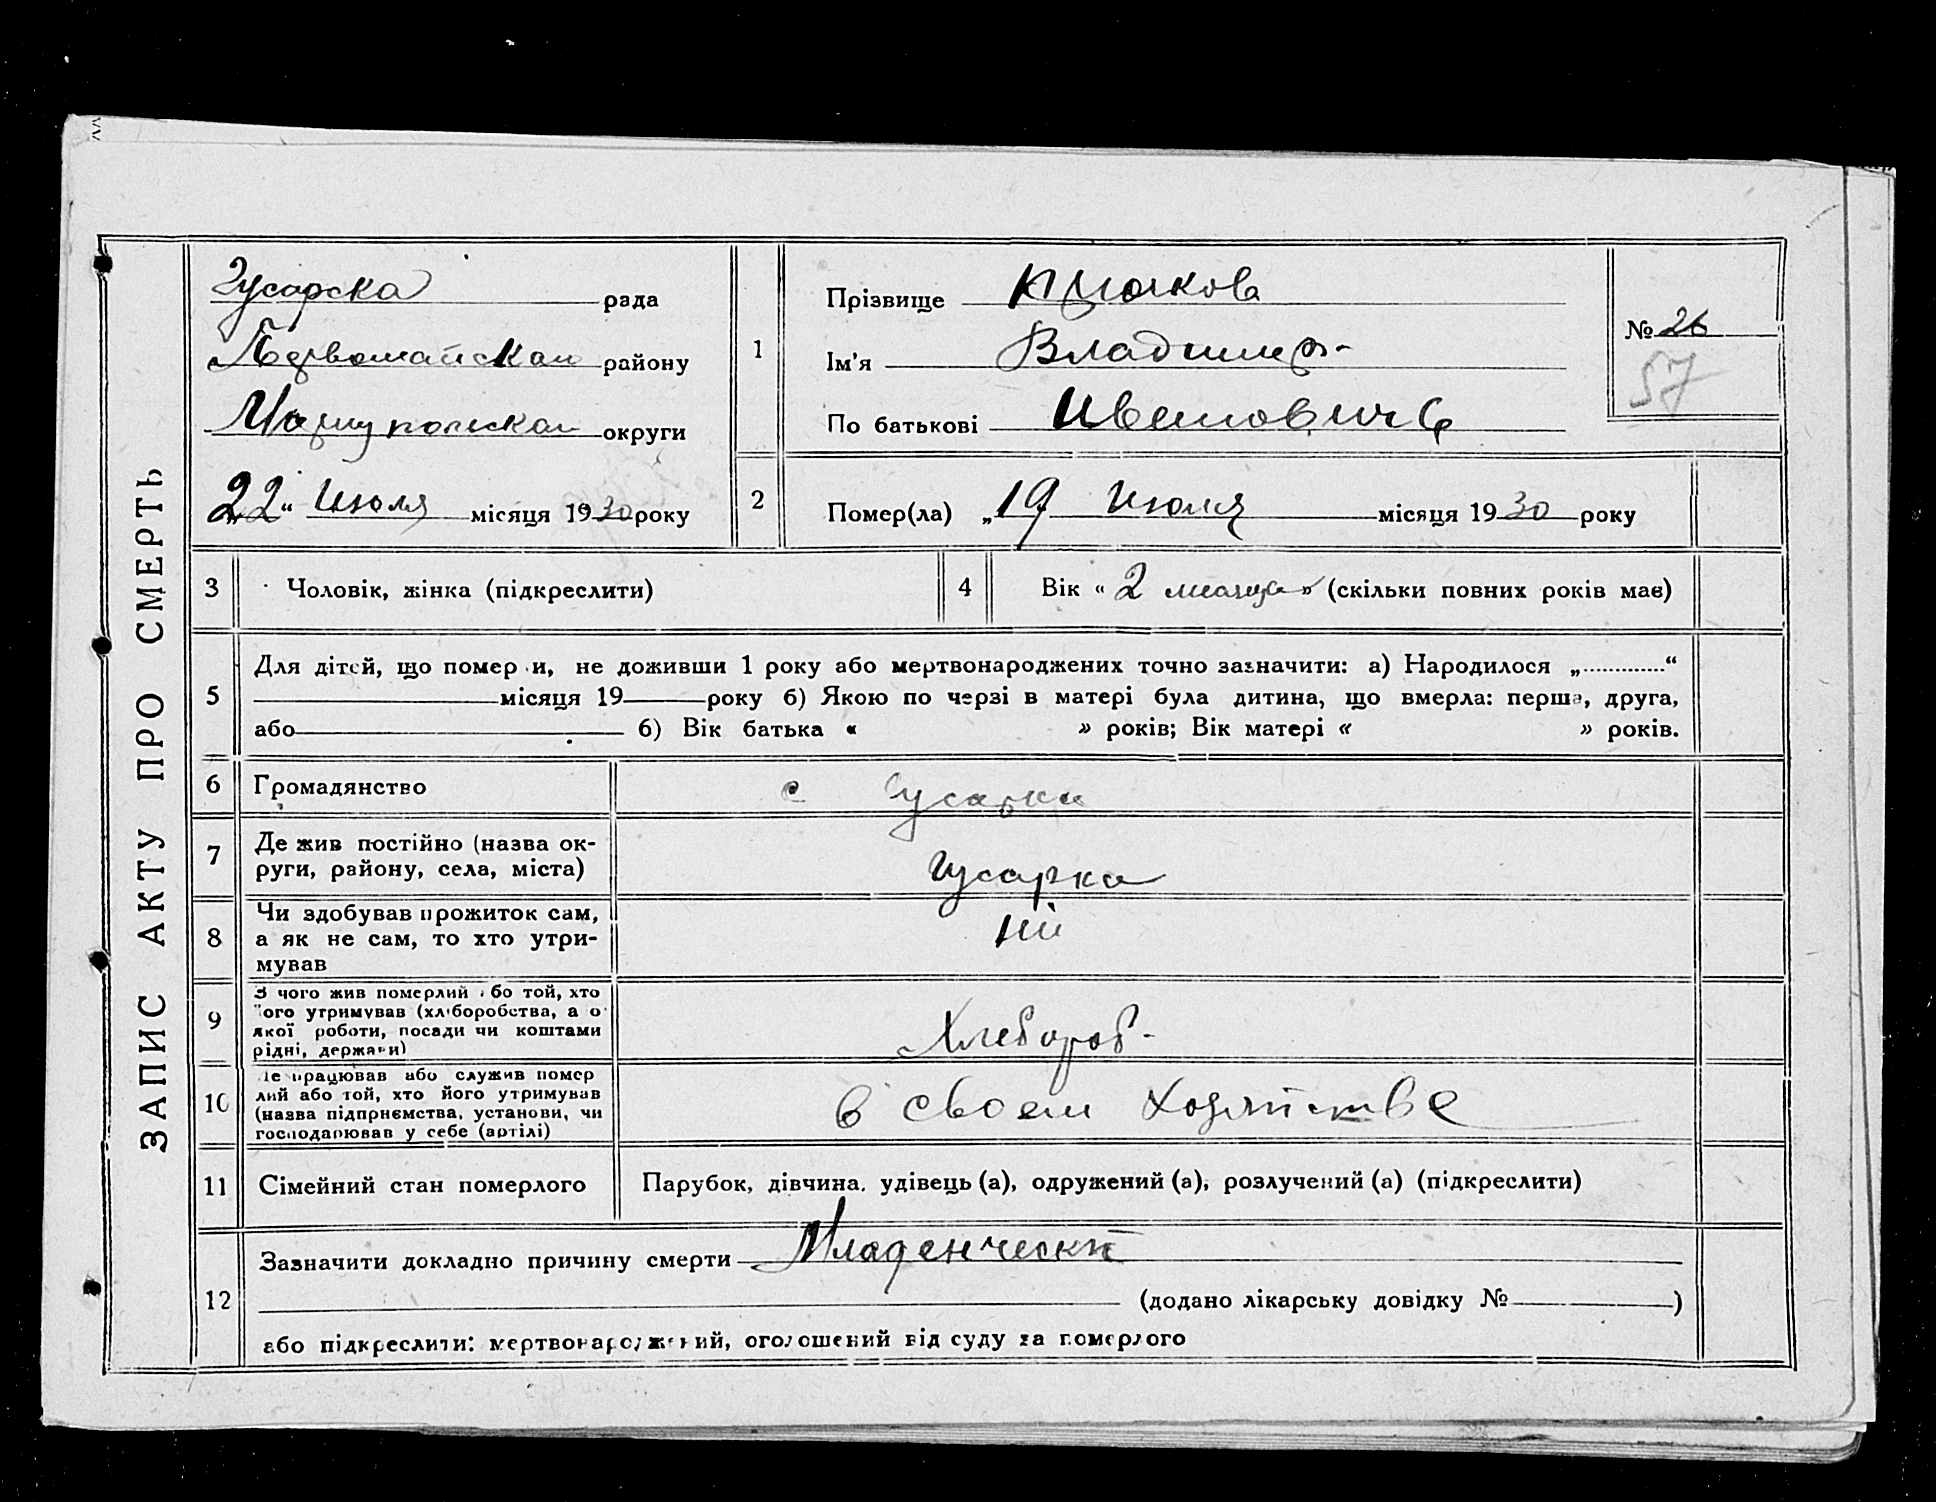 ЗАПИС АКТУ ПРО СМЕРТЬ
Гусарска рада
Первомайскаи району
Мариупольскаи округи
„22“ Июля місяця 1930 року
1
Прізвище Крюкова
Ім'я Владимир
По батькові Ивановича
№ 26
57
2
Помер(ла) „19 Июля місяця 1930 року
3 Чоловік, жінка (підкреслити)
4 Вік « 2 месяца » (скільки повних років має)
5
Для дітей, що померли, не доживши 1 року або мертвонароджених точно зазначити: а) Народилося „.............“
місяця 19 року б) Якою по черзі в матері була дитина, що вмерла: перша, друга,
або б) Вік батька « » років; Вік матері « » років.
6 Громадянство с Гусарка
7
Де жив постійно (назва ок-
руги, району, села, міста)
Гусарка
8
Чи здобував прожиток сам,
а як не сам, то хто утри-
мував
Ні
9
З чого жив померлий або той, хто
його утримував (хліборобства, а о
якої роботи, посади чи коштами
рідні, держави)
Хлебороб-
10
Де працював або служив помер
лий або той, хто його утримував
(назва підприємства, установи, чи
господарював у себе (артілі)
в своем хозяйстве
11 Сімейний стан померлого Парубок, дівчина, удівець (а), одружений (а), розлучений (а) (підкреслити)
12
Зазначити докладно причину смерти Младенческ
(додано лікарську довідку № )
або підкреслити: мертвонароджений, оголошений від суду за померлого